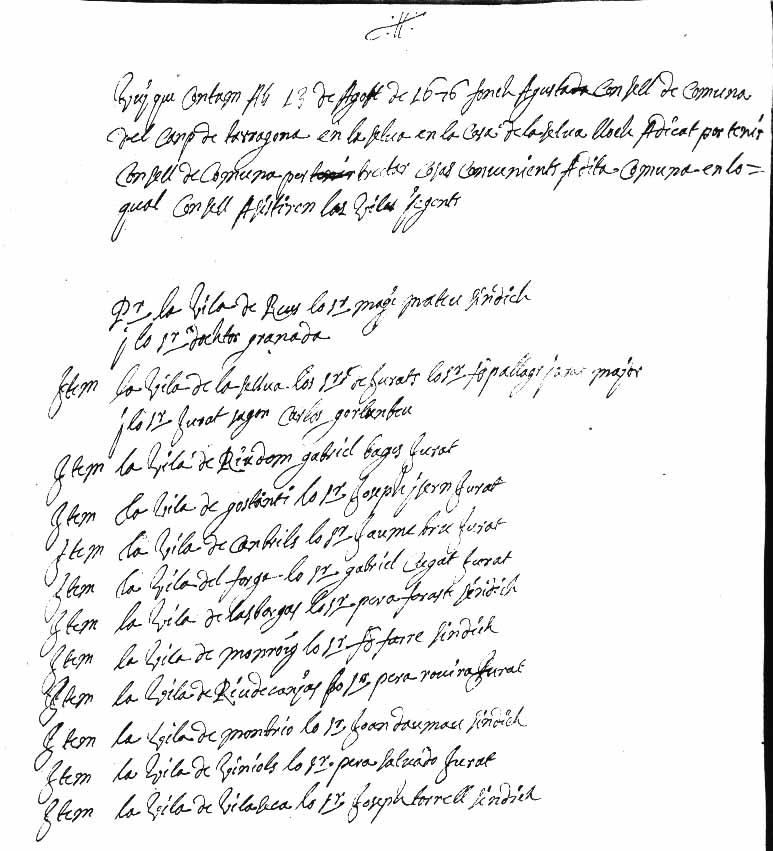 Vuy que Contam Als 13 de Agost de 1676 fonch Ajustada Consell de Comuna
del Camp de tarragona en la selva en la Casa de la selva lloch Adicat per tenir
Consell de Comuna per tenir trectar cosas convenients A dita Comuna en lo
qual Consell Asistiren las vilas segents
Pr la Vila de Reus lo sr magi mateu sindich
j lo sr dochtor granada
Item la Vila de la sellva los srs de Jurats lo sr major
j lo sr Jurat segon Carlos
Item la Vila de Riudoms gabriel bages Jurat
Item la Vila de gostanti lo sr Joseph jsern Jurat
Item la Vila de Cambrils lo sr Jaume bru Jurat
Item la Vila del forga lo sr gabriel Cugat Jurat
Item la Vila de lasborgas lo sr pera foraste sindich
Item la Vila de monroig lo sr farre sindich
Item la Vila de Riudecanyas lo sr pera rovira Jurat
Item la Vila de montrio lo sr Joan daumau sindich
Item la Vila de Viniols lo sr pera salvado Jurat
Item la Vila de Vilaseca lo sr Joseph torrell sindich